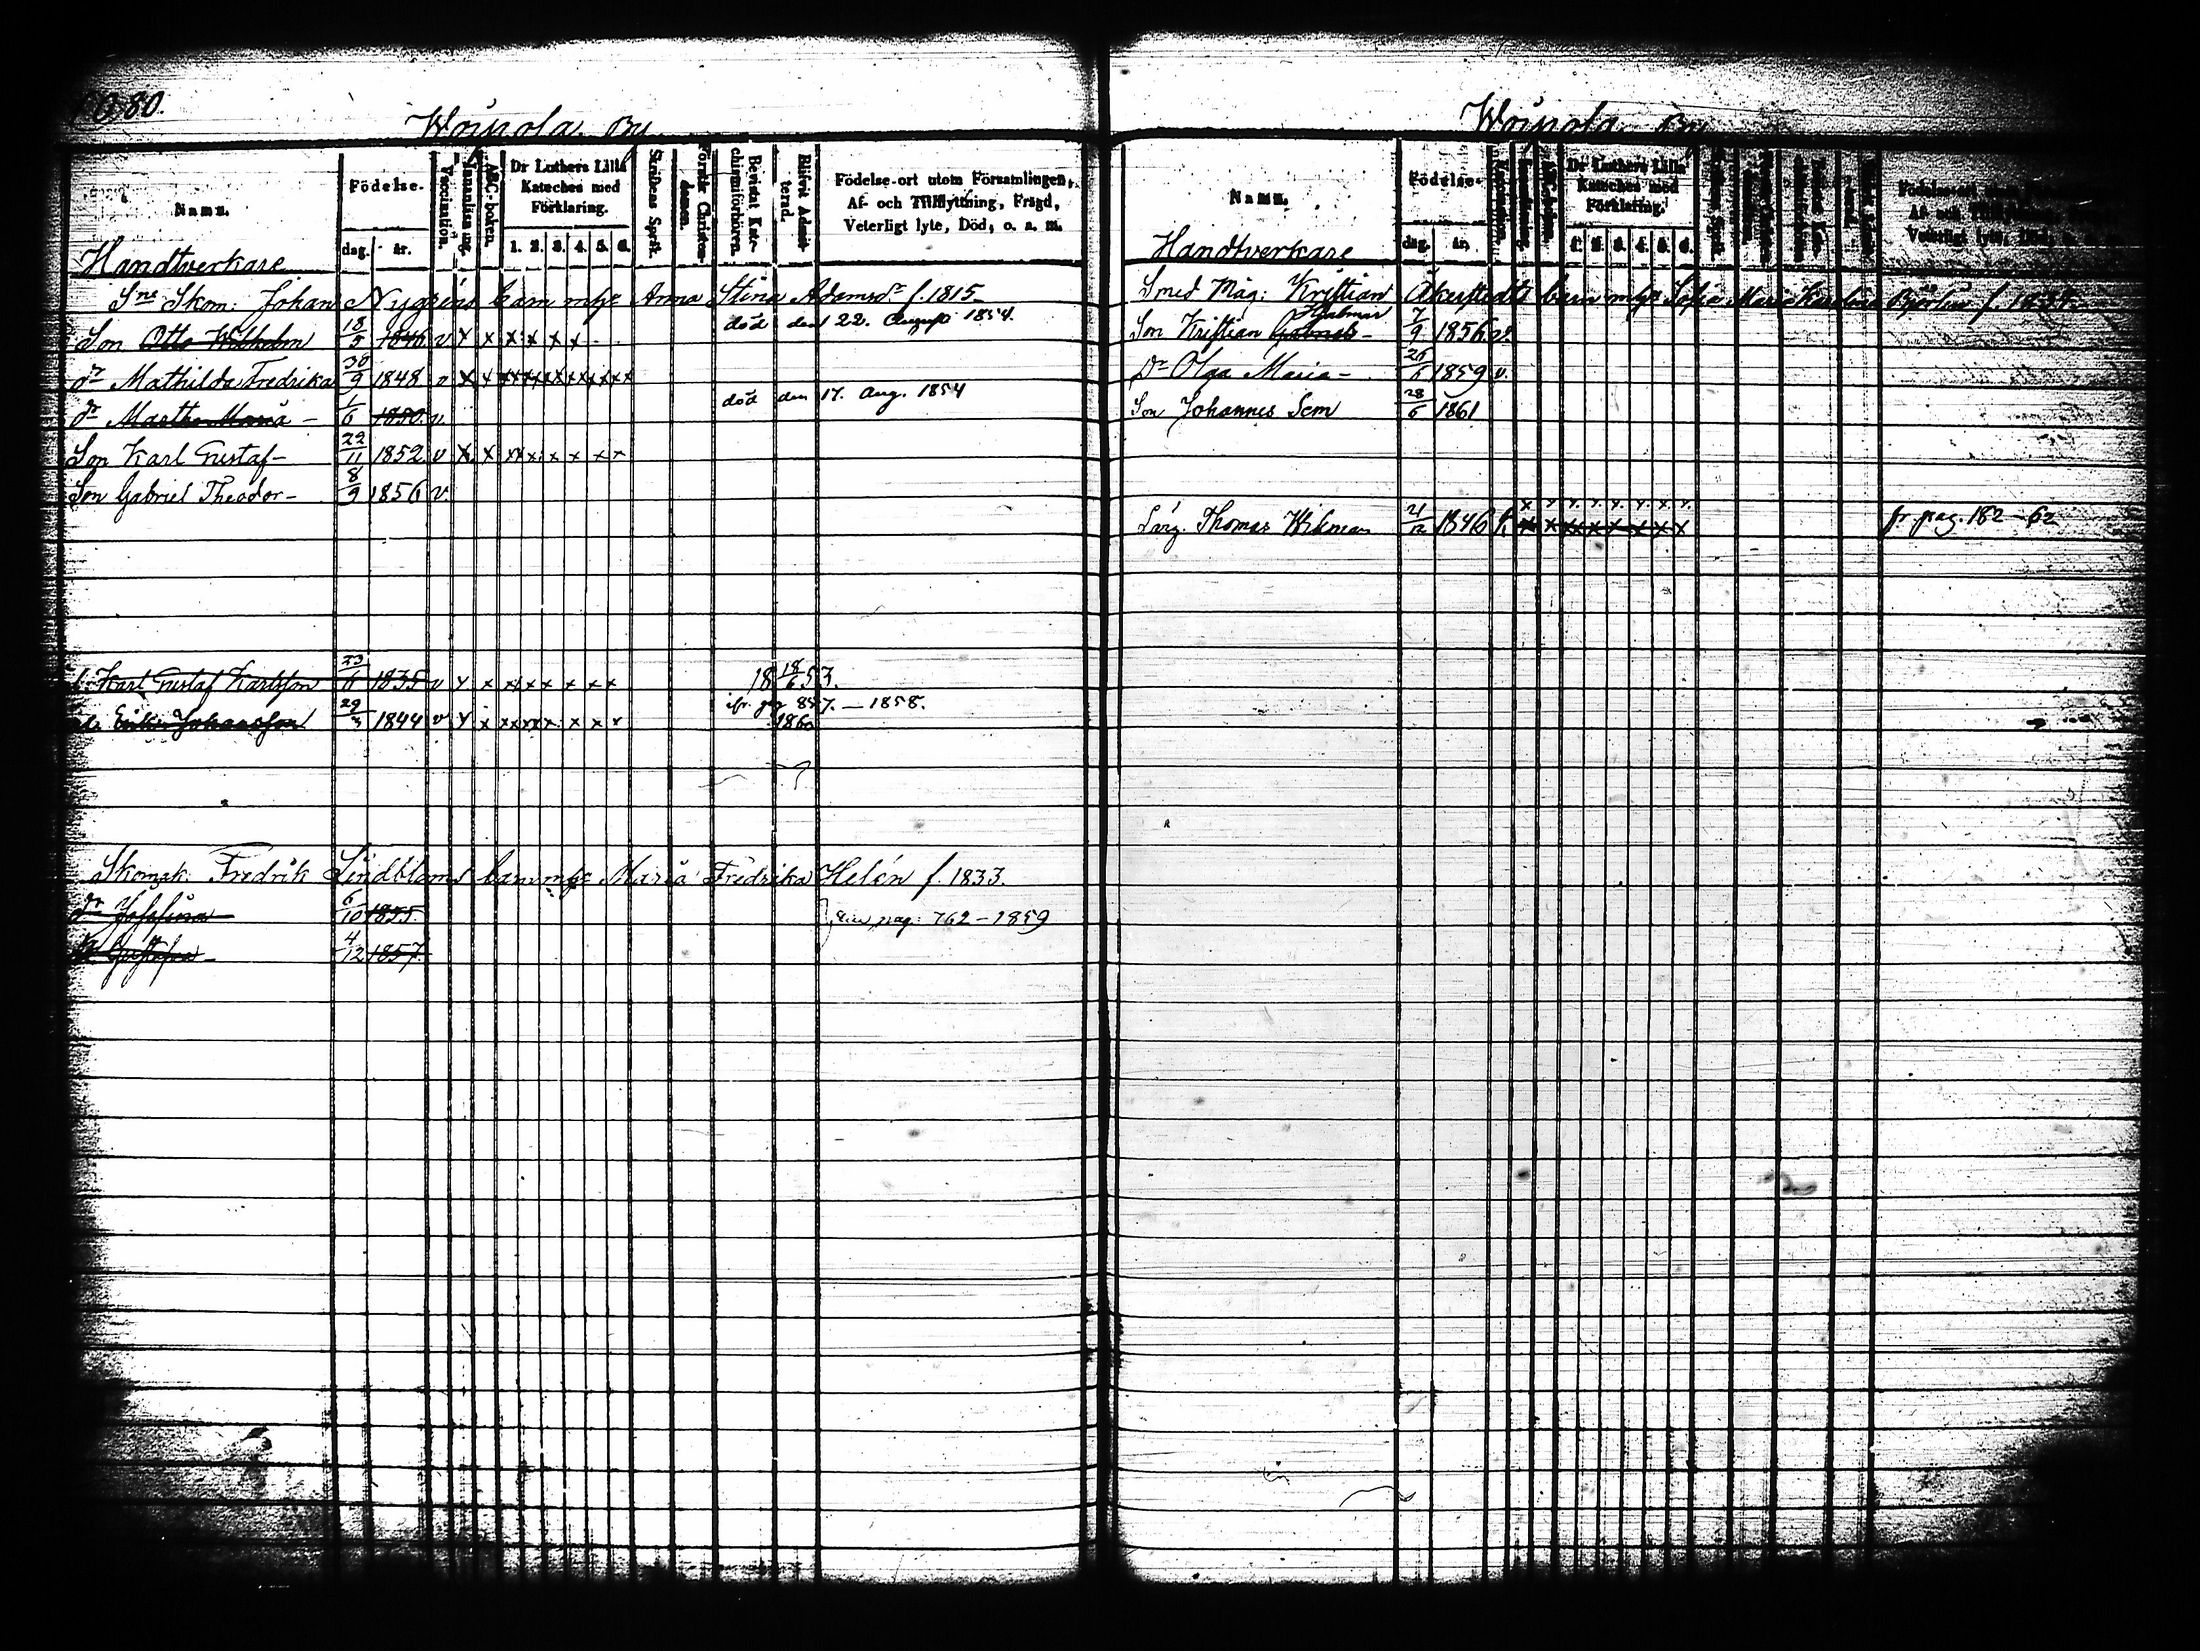 1080.
Woipola By
Namn.
Födelse-
dag. år.
Vaccination.
Innanläsning.
ABC-boken.
Dr Luthers Lilla Kateches med Förklaring.
1. 2. 3. 4. 5. 6.
Skriftens Språk.
Förstår Christendomen.
Bevistat Katechismiförhören.
Blifvit Admitterad.
Födelse-ort utom Församlingen, Af- och Tillflyttning, Frägd, Veterligt lyte, Död, o. a. m.
Handtverkare
Sne Skom: Johan Nygréns barn mhe Anna Stina Adamsdr f. 1815
Son Otto Wilhelm 18/5 1846 v x x x x x x död den 22. Augusti 1854.
dr Mathilda Fredrika 30/9 1848 v x x x x x x x x x x x
dr Martha Maria - 1/6 1850. v. död den 17. Aug. 1854
Son Karl Gustaf - 22/11 1852 v x x x x x x x x x
Son Gabriel Theodor - 8/9 1856 v
Karl Gustaf Karlsson 23/6 1835 v x x x x x x x x x 18 18/6 53.
Johansson 29/3 1844 v x x x x x x x x x x 857. - 1858.
1860
Skomak. Fredrik Lindbloms barn mhe Maria Fredrika Helén f. 1833.
dr Josefina 6/10 1855. pag: 762 - 1859
Gustafva - 4/12 1857.
Woipola By
Namn.
Födelse-
dag. år.
Dr Luthers Lilla Kateches med Förklaring.
1. 2. 3. 4. 5. 6.
Handtverkare
Smed Mäg: Kristian Åkerstedts barn mhe Sofia Maria Karolina Björlin f. 1834.
Hjalmar
Son Kristian Gabriel - 7/9 1856 v.
Dr Olga Maria - 1859 v.
Son Johannes Sem 28/6 1861
x x x x x x x x
Lärg. Thomas Wikman 21/12 1846 x x x x x x x x fr pag. 182 - 62